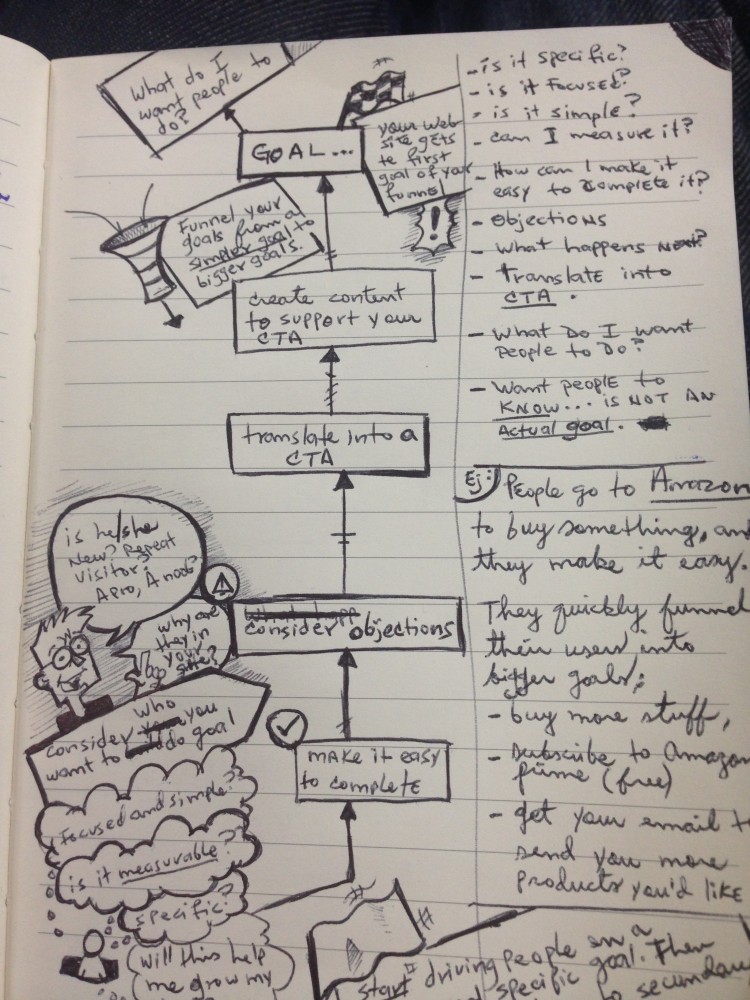 What do I
want people to
do?
GOAL...
your web
site gets
te first
goal of your
funnel
!
Funnel your
goals from a
simpler goal to
bigger goals.
create content
to support your
CTA
translate into a
CTA
is he/she
New? Repeat
visitor?
A pro, A noob?
why are
they in
your
site?
consider objections
who
consider you
want to do goal
make it easy
to complete
Focused and simple?
is it measurable?
specific?
will this help
me grow my
- is it specific?
- is it focused?
- is it simple?
- can I measure it?
- How can I make it
easy to complete it?
- Objections
- What happens next?
- Translate into
CTA.
- What Do I want
People to Do?
- Want people to
KNOW... is NOT AN
Actual goal.
Ej: People go to Amazon
to buy something, and
they make it easy.
They quickly funnel
their users into
bigger goals:
- buy more stuff,
- Subscribe to Amazon
prime (free)
- get your email to
send you more
products you'd like
start driving people on a
specific goal. Then
to secundary